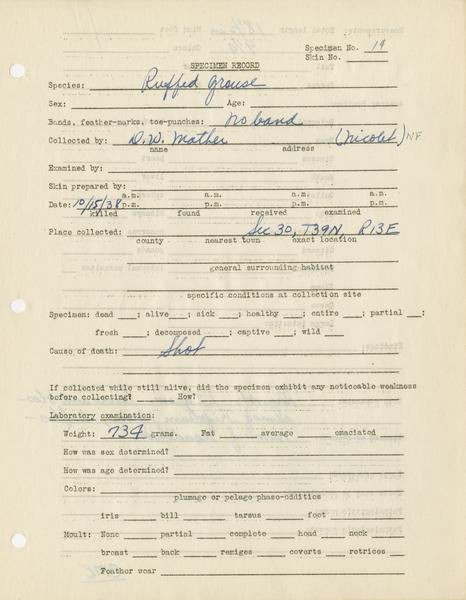 Specimen No. 19
Skin No.
SPECIMEN RECORD
Species: Ruffed grouse
Sex: Age:
Bands, feather-marks, toe-punches: no band
Collected by: D. W. Mather (Nicolet) NF
name address
Examined by:
Skin prepared by:
a.m. a.m. a.m. a.m.
Date: 10/15/38 p.m. p.m. p.m. p.m.
killed found received examined
Place collected: Sec 30, T39N, R13E
county nearest town exact location
general surrounding habitat
specific conditions at collection site
Specimen: dead ; alive ; sick ; healthy ; entire ; partial ;
fresh ; decomposed ; captive ; wild
Cause of death: Shot
If collected while still alive, did the specimen exhibit any noticeable weakness
before collecting? How?
Laboratory examination:
Weight: 734 grams. Fat average emaciated
How was sex determined?
How was age determined?
Colors:
plumage or pelage phase-oddities
iris bill tarsus foot
Moult: None partial complete head neck
breast back remiges coverts retrices
Feather wear